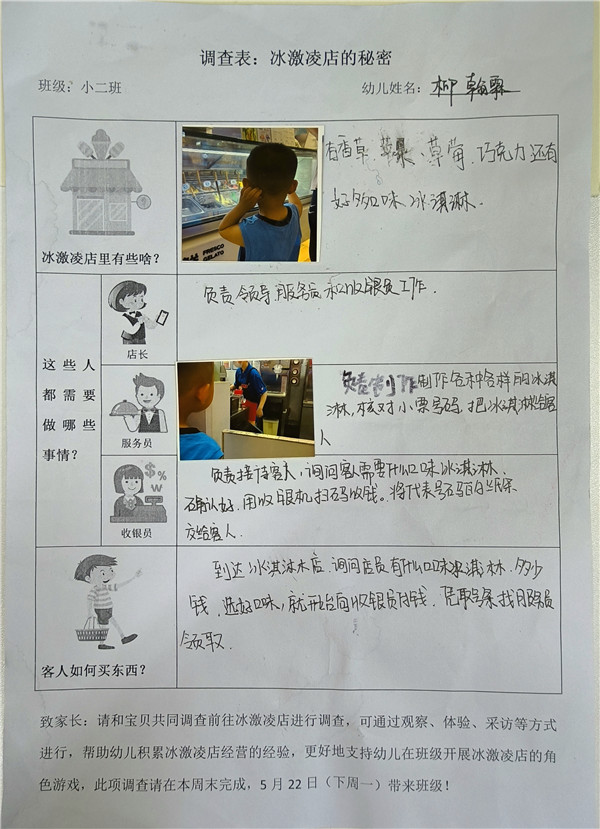 调查表：冰激凌店的秘密
班级：小二班 幼儿姓名：柳翰霖
冰激凌店里有些啥？
FRESCO
GELATO
有香草、苹果、草莓、巧克力还有
好多口味冰淇淋.
这些人
都需要
做哪些
事情？
店长
负责领导服务员和收银员工作.
服务员
负责制作制作各种各样的冰淇
淋,核对小票号码,把冰淇淋给客
人
收银员
负责接待客人,询问客人需要什么口味冰淇淋.
确认好.用收银机扫码收钱。将代表号码的纸条
交给客人.
客人如何买东西？
到达冰淇淋店.询问店员有什么口味冰淇淋.多少
钱.选好口味,就开始向收银员付钱.凭取号条找服务员
领取.
致家长：请和宝贝共同调查前往冰激凌店进行调查，可通过观察、体验、采访等方式
进行，帮助幼儿积累冰激凌店经营的经验，更好地支持幼儿在班级开展冰激凌店的角
色游戏，此项调查请在本周末完成，5月22日（下周一）带来班级！